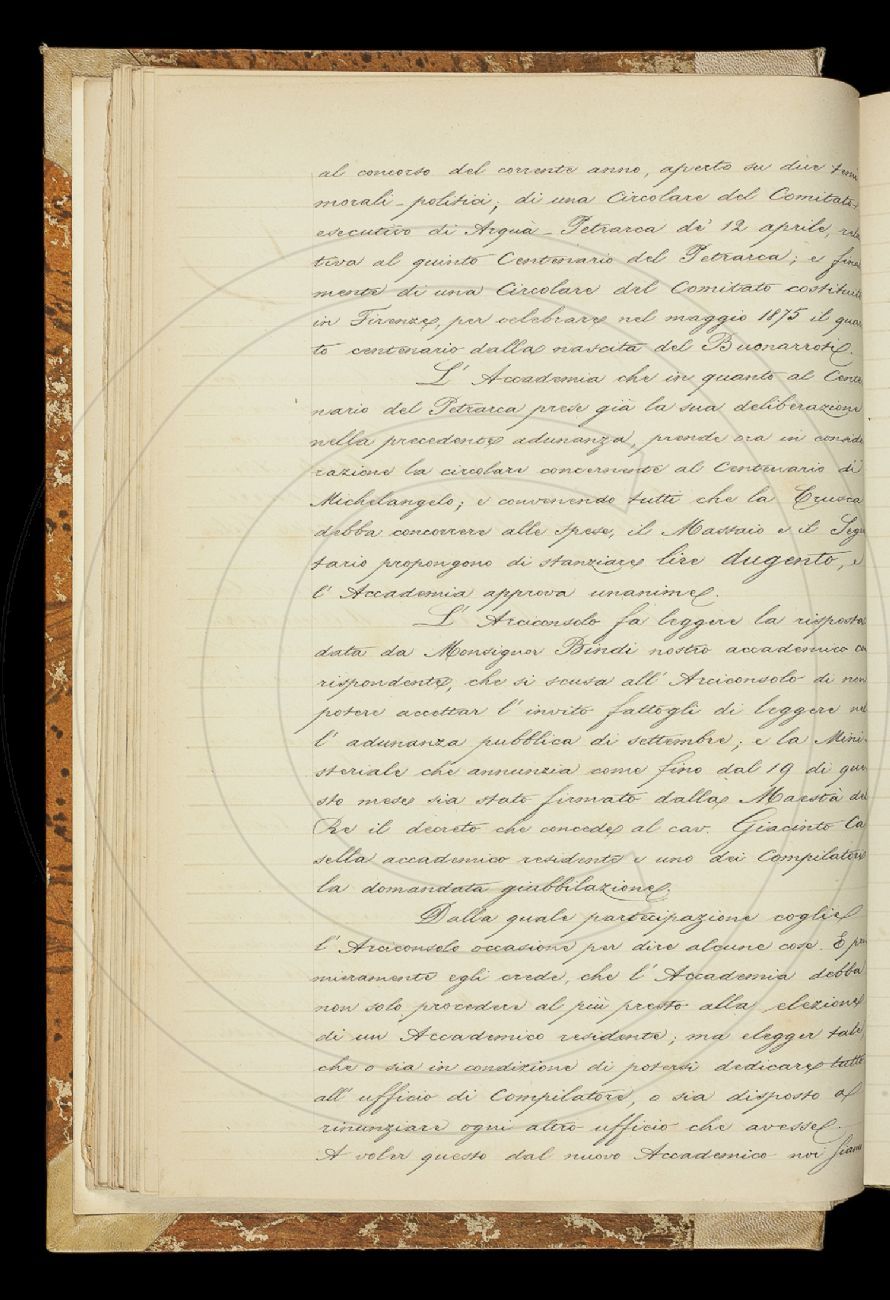 al concorso del corrente anno, aperto su due temi
morali-politici; di una Circolare del Comitato
esecutivo di Arquà-Petrarca de' 12 aprile, rela
tiva al quinto Centenario del Petrarca; e final
mente di una Circolare del Comitato costituito
in Firenze, per celebrare nel maggio 1875 il quar
to centenario dalla nascita del Buonarroti.
L' Accademia che in quanto al Cente
nario del Petrarca prese già la sua deliberazione
nella precedente adunanza, prende ora in conside
razione la circolare concernente al Centenario di
Michelangelo; e convenendo tutti che la Crusca
debba concorrere alle spese, il Massaio e il Segre
tario propongono di stanziare lire dugento, e
l' Accademia approva unanime.
L' Arciconsolo fa leggere la risposta
data da Monsignor Bindi nostro accademico co
rispondente, che si scusa all' Arciconsolo di non
potere accettar l' invito fattogli di leggere nel
l' adunanza pubblica di settembre; e la Mini-
steriale che annunzia come fino dal 19 di que
sto mese sia stato firmato dalla Maestà del
Re il decreto che concede al cav. Giacinto Ca
sella accademico residente e uno dei Compilatori
la domandata giubbilazione.
Dalla quale partecipazione coglie
l' Arciconsolo occasione per dire alcune cose. E pri
mieramente egli crede, che l' Accademia debba
non solo procedere al più presto alla elezione
di un Accademico residente; ma elegger tale,
che o sia in condizione di potersi dedicare tutto
all' ufficio di Compilatore, o sia disposto a
rinunziare ogni altro ufficio che avesse.
A voler questo dal nuovo Accademico noi siamo